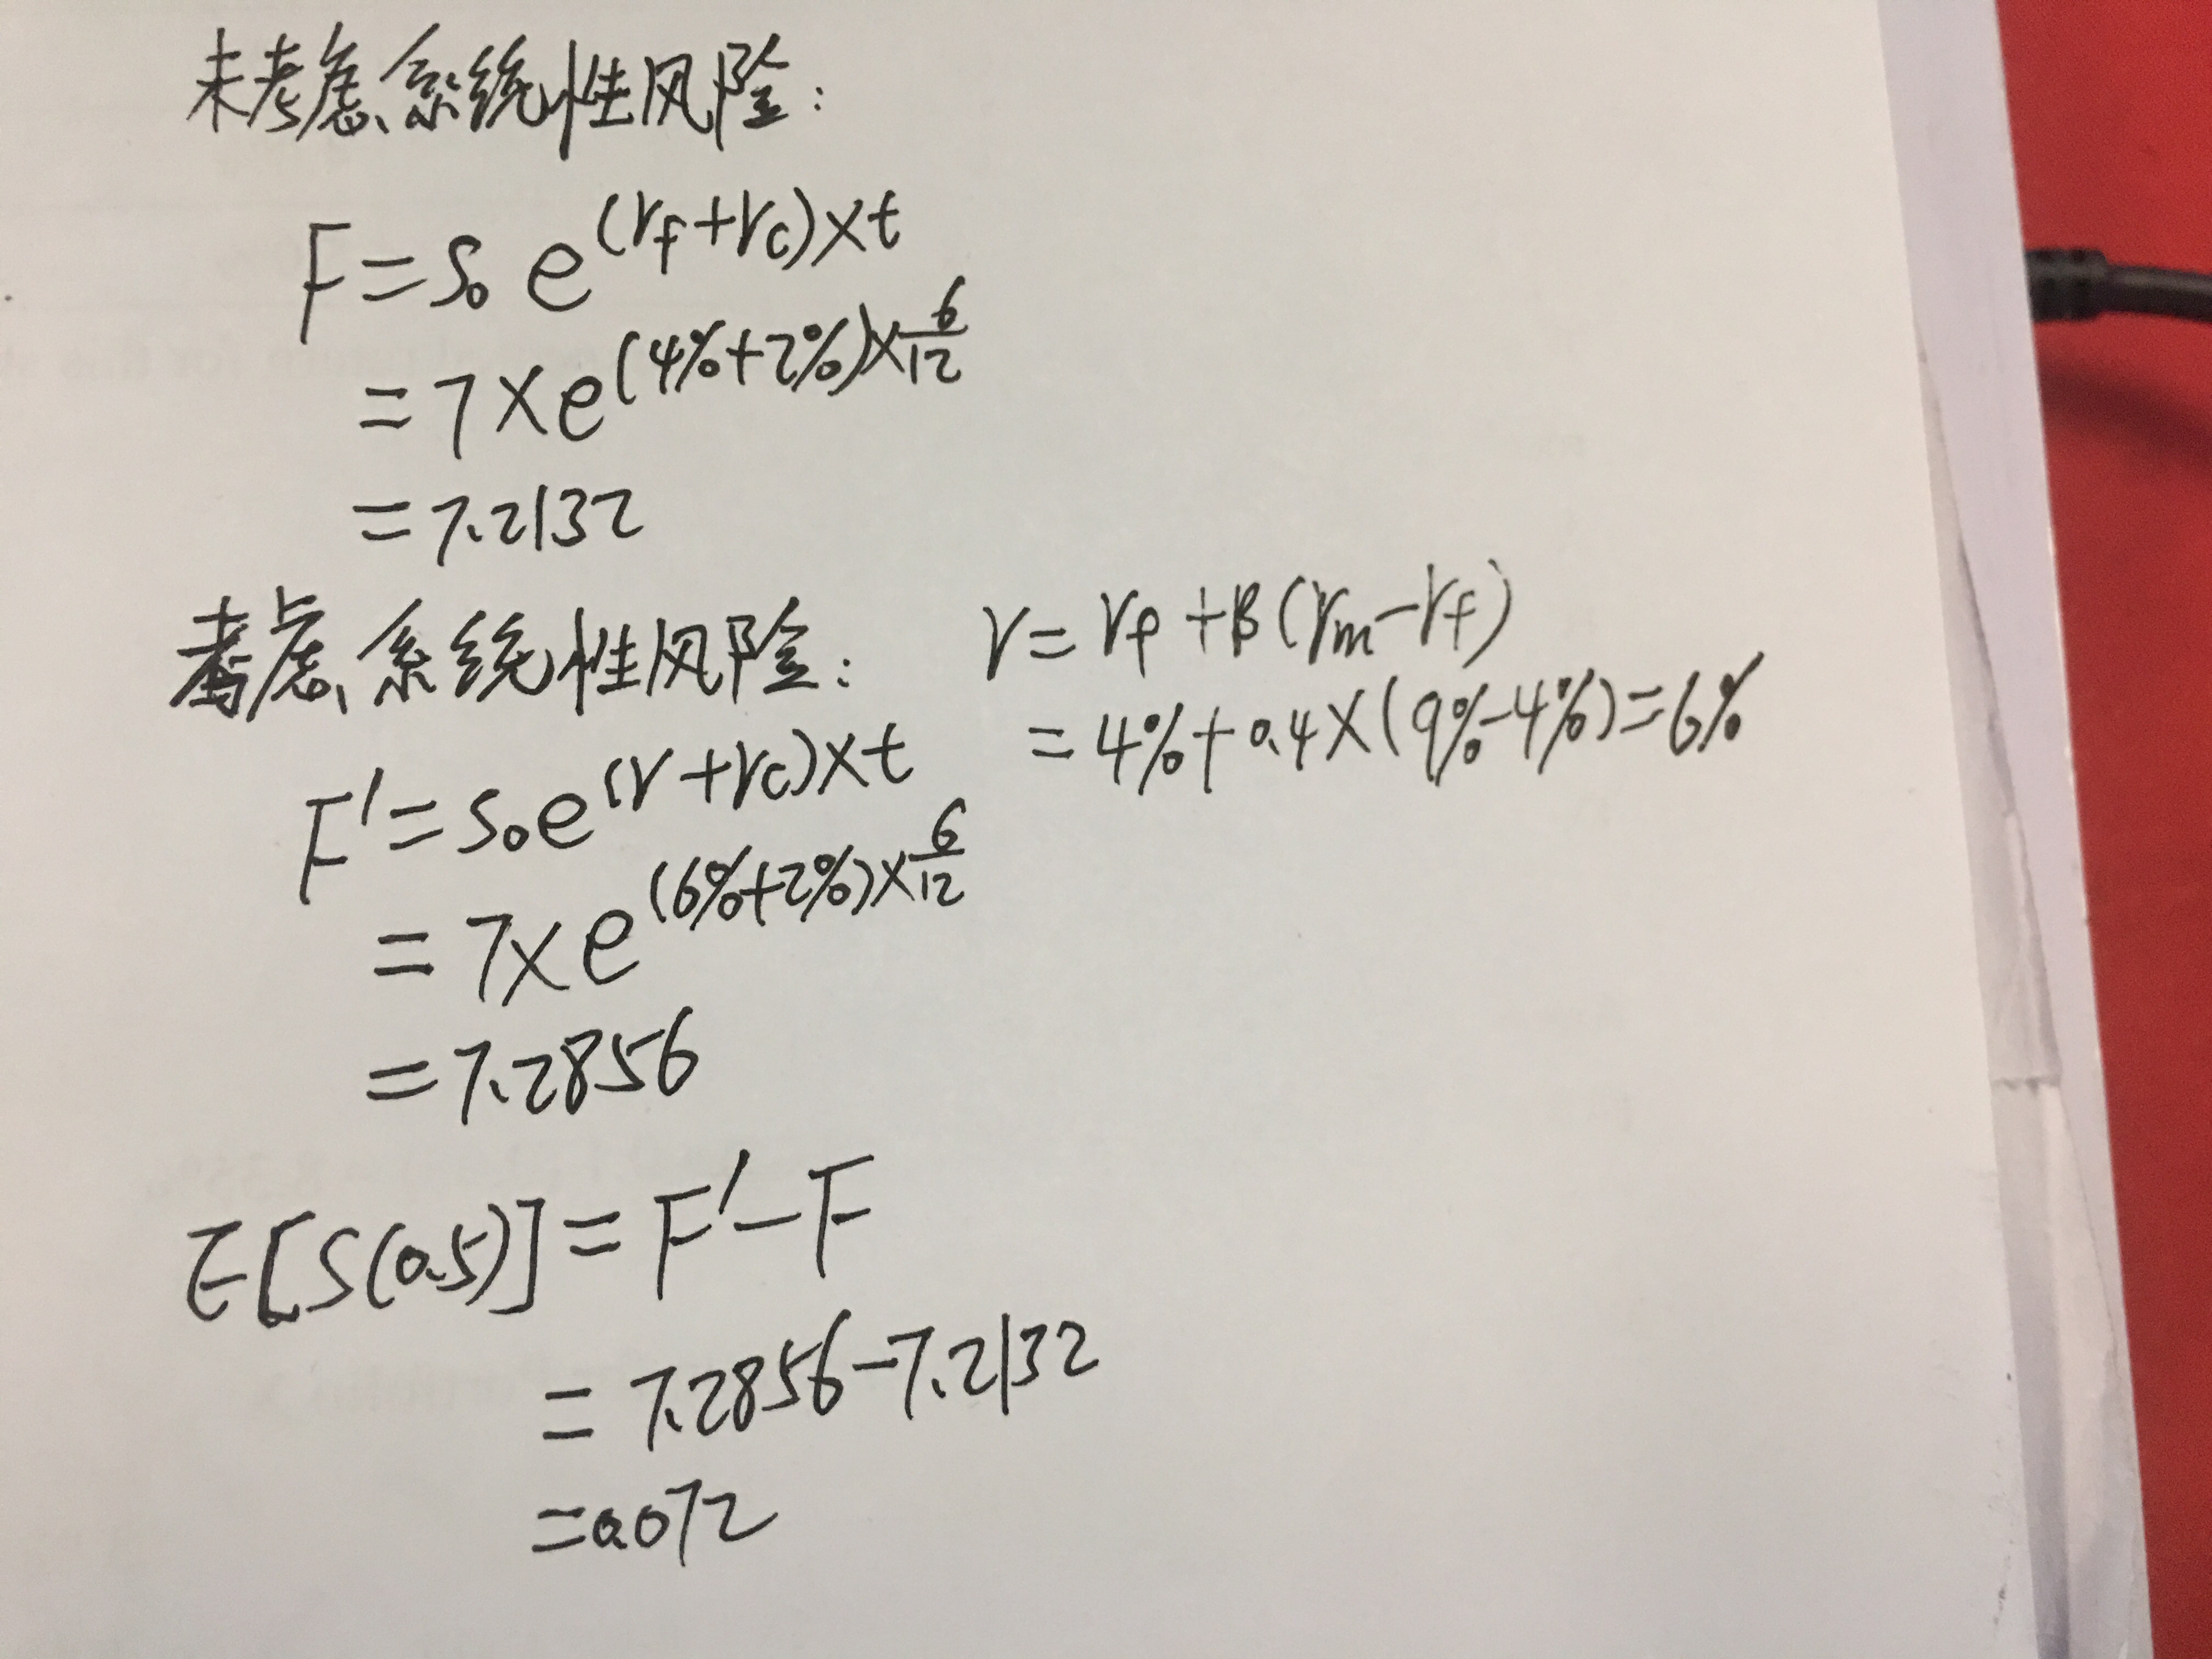 未考虑系统性风险:
F=S₀ e^(rf+rc)×t
=7×e^(4%+2%)×6/12
=7.2132
考虑系统性风险: r=rf+β(rm-rf)
=4%+0.4×(9%-4%)=6%
F'=S₀e^(r+rc)×t
=7×e^(6%+2%)×6/12
=7.2856
E[S(0.5)]=F'-F
=7.2856-7.2132
=0.072